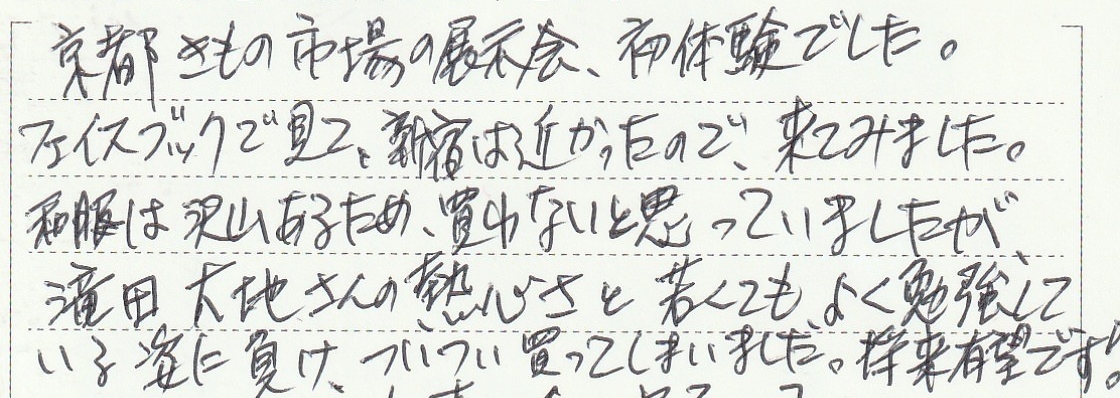 京都きもの市場の展示会、初体験でした。
フェイスブックで見て、新宿は近かったので、来てみました。
和服は沢山あるため、買わないと思っていましたが、
滝田大地さんの熱心さと若くても、よく勉強して
いる姿に負け、ついつい買ってしまいました。将来有望です!